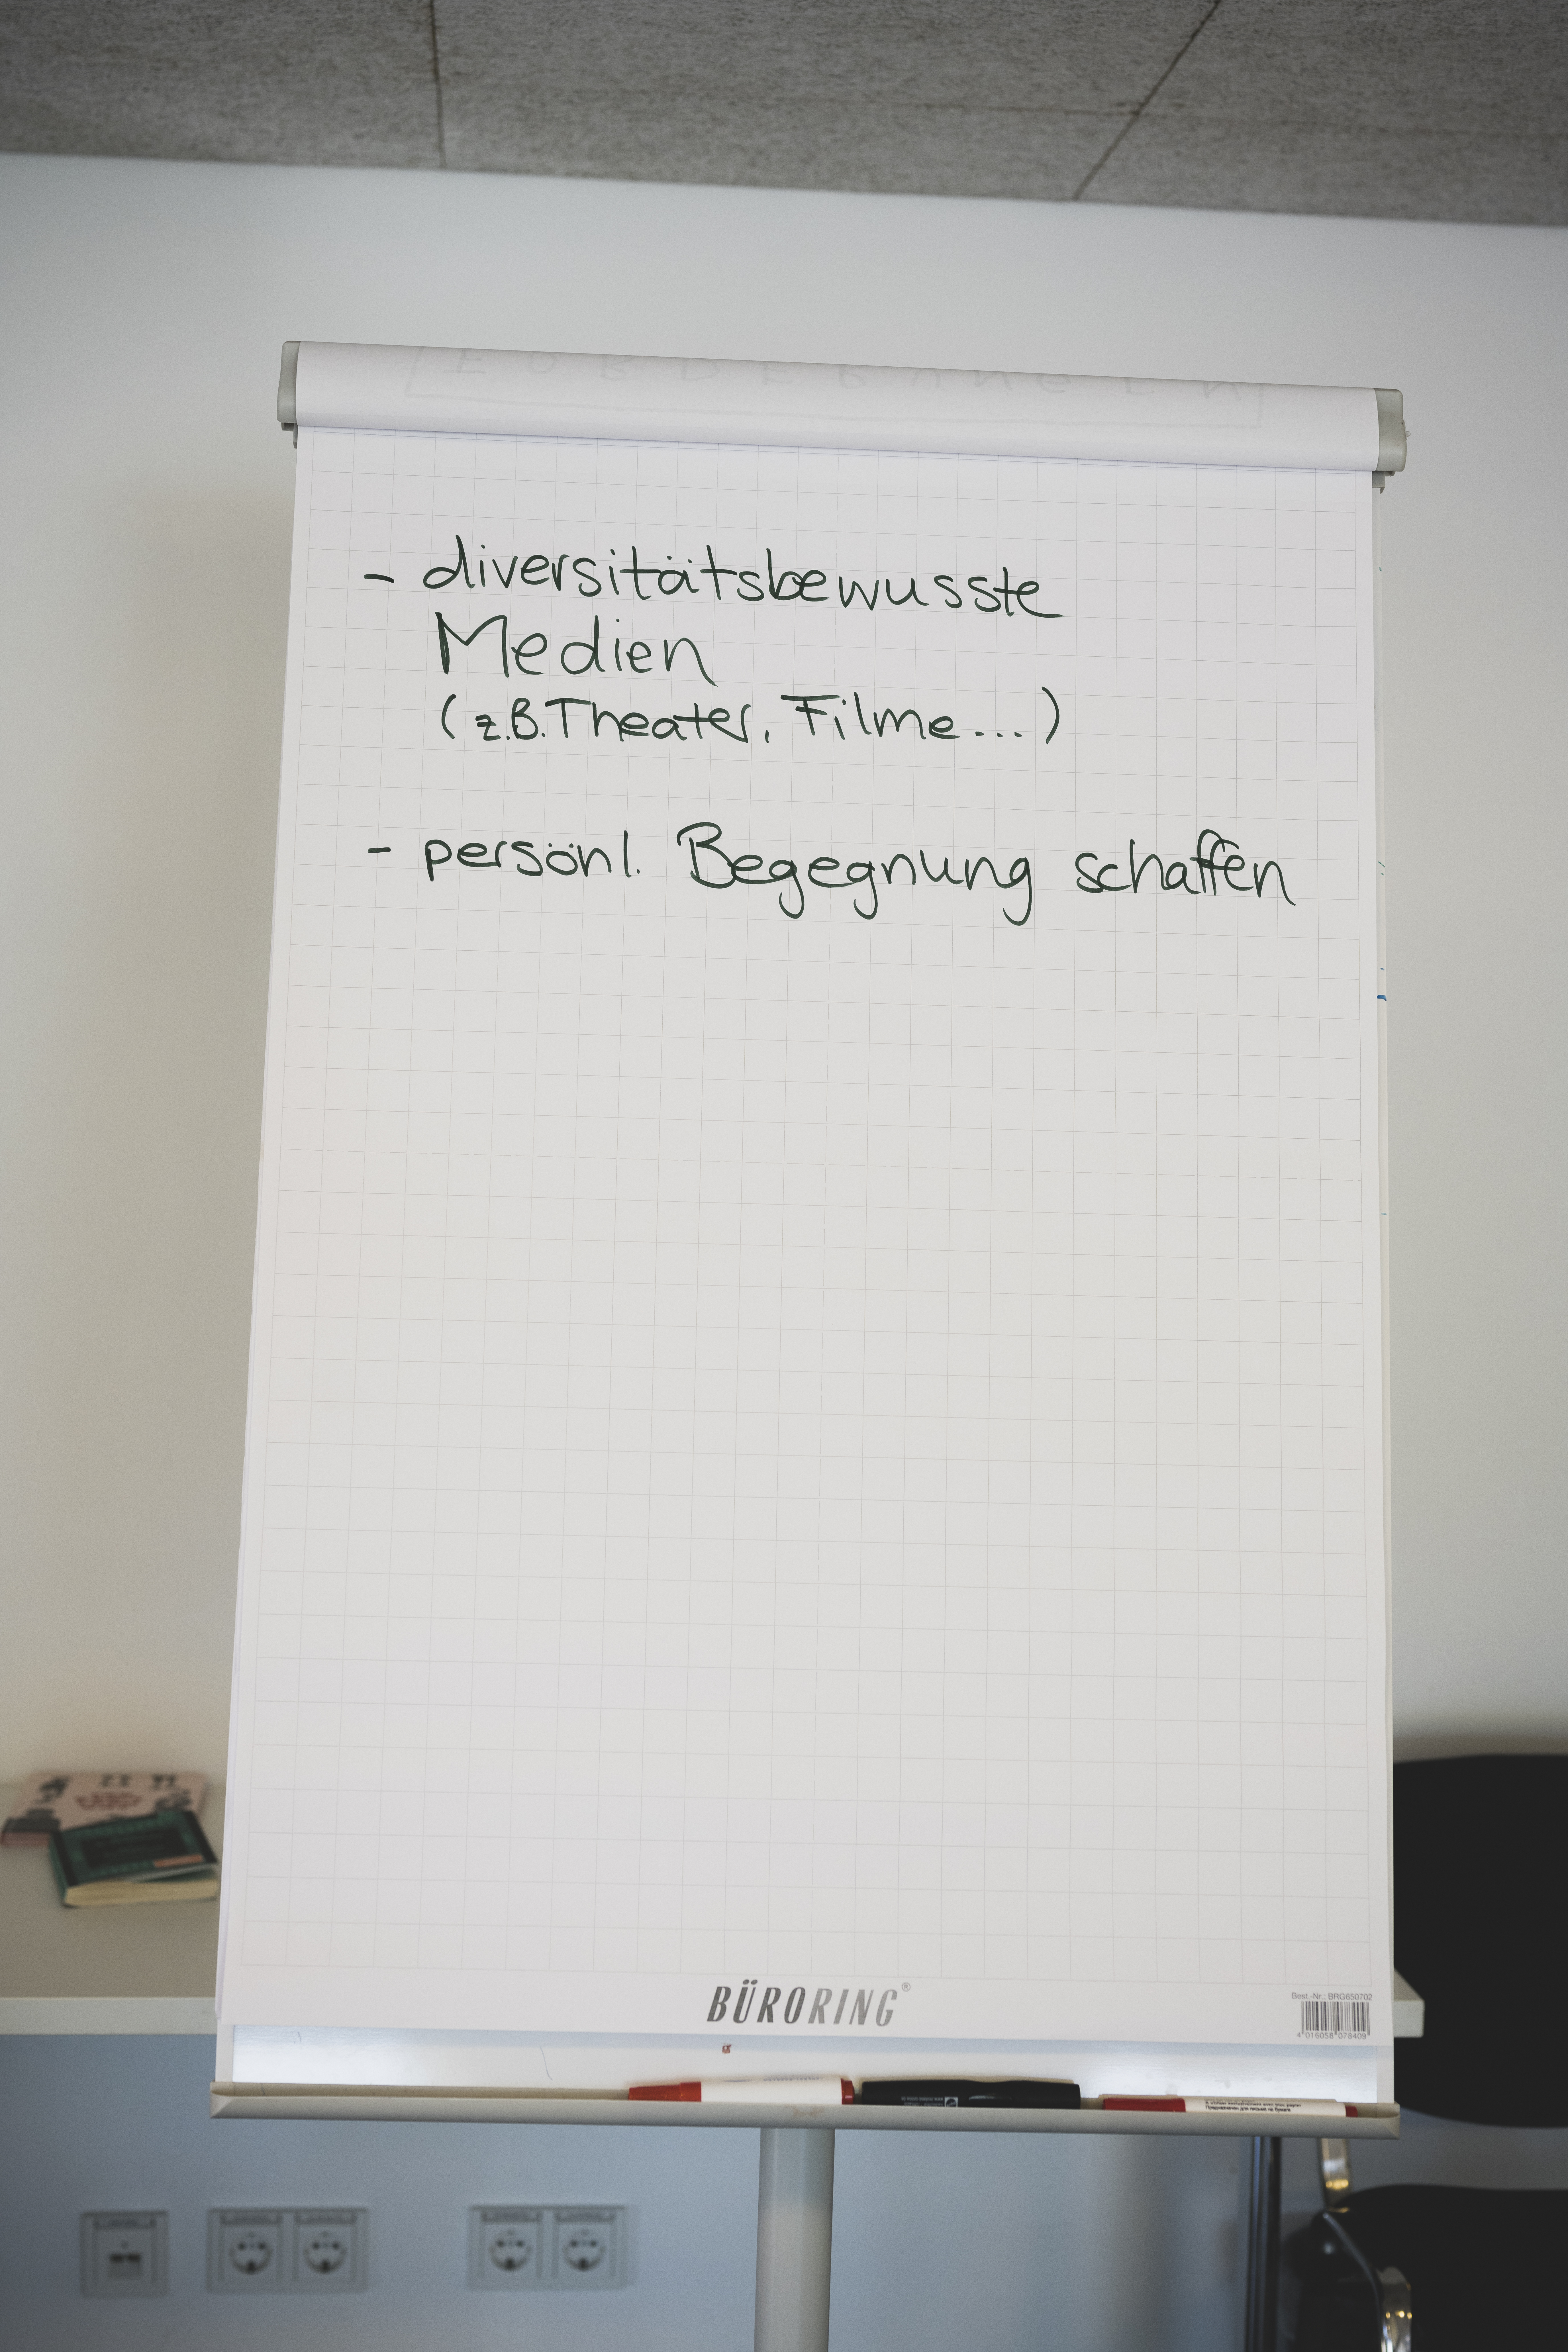 FORDERUNGEN
- diversitätsbewusste
Medien
(z.B. Theater, Filme...)
- persönl. Begegnung schaffen
BÜRORING®
Best.-Nr.: BRG650702
4 016058 078409